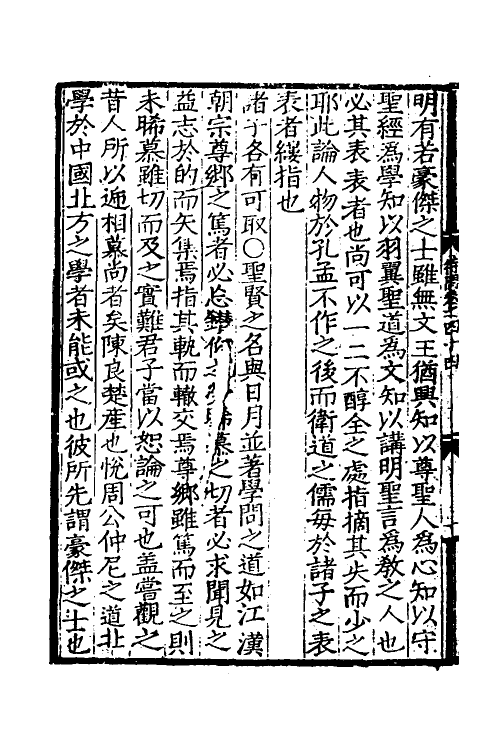 明有若豪傑之士雖無文王猶興知以尊聖人為心知以守
聖經爲學知以羽翼聖道爲文知以講明聖言爲敎之人也
必其表表者也尚可以一二不醇全之處指摘其失而少之
耶此論人物於孔孟不作之後而衛道之儒每於諸子之表
表者縷指也
諸子各有可取○聖賢之名與日月並著學問之道如江漢
朝宗尊鄉之篤者必仰之慕之切者必求聞見之
益志於的而矢集焉指其軌而轍交焉尊鄉雖篤而至之則
未晞慕雖切而及之實難君子當以恕論之可也盖嘗觀之
昔人所以逓相慕尚者矣陳良楚産也恱周公仲尼之道北
學於中國北方之學者未能或之也彼所先謂豪傑之士也